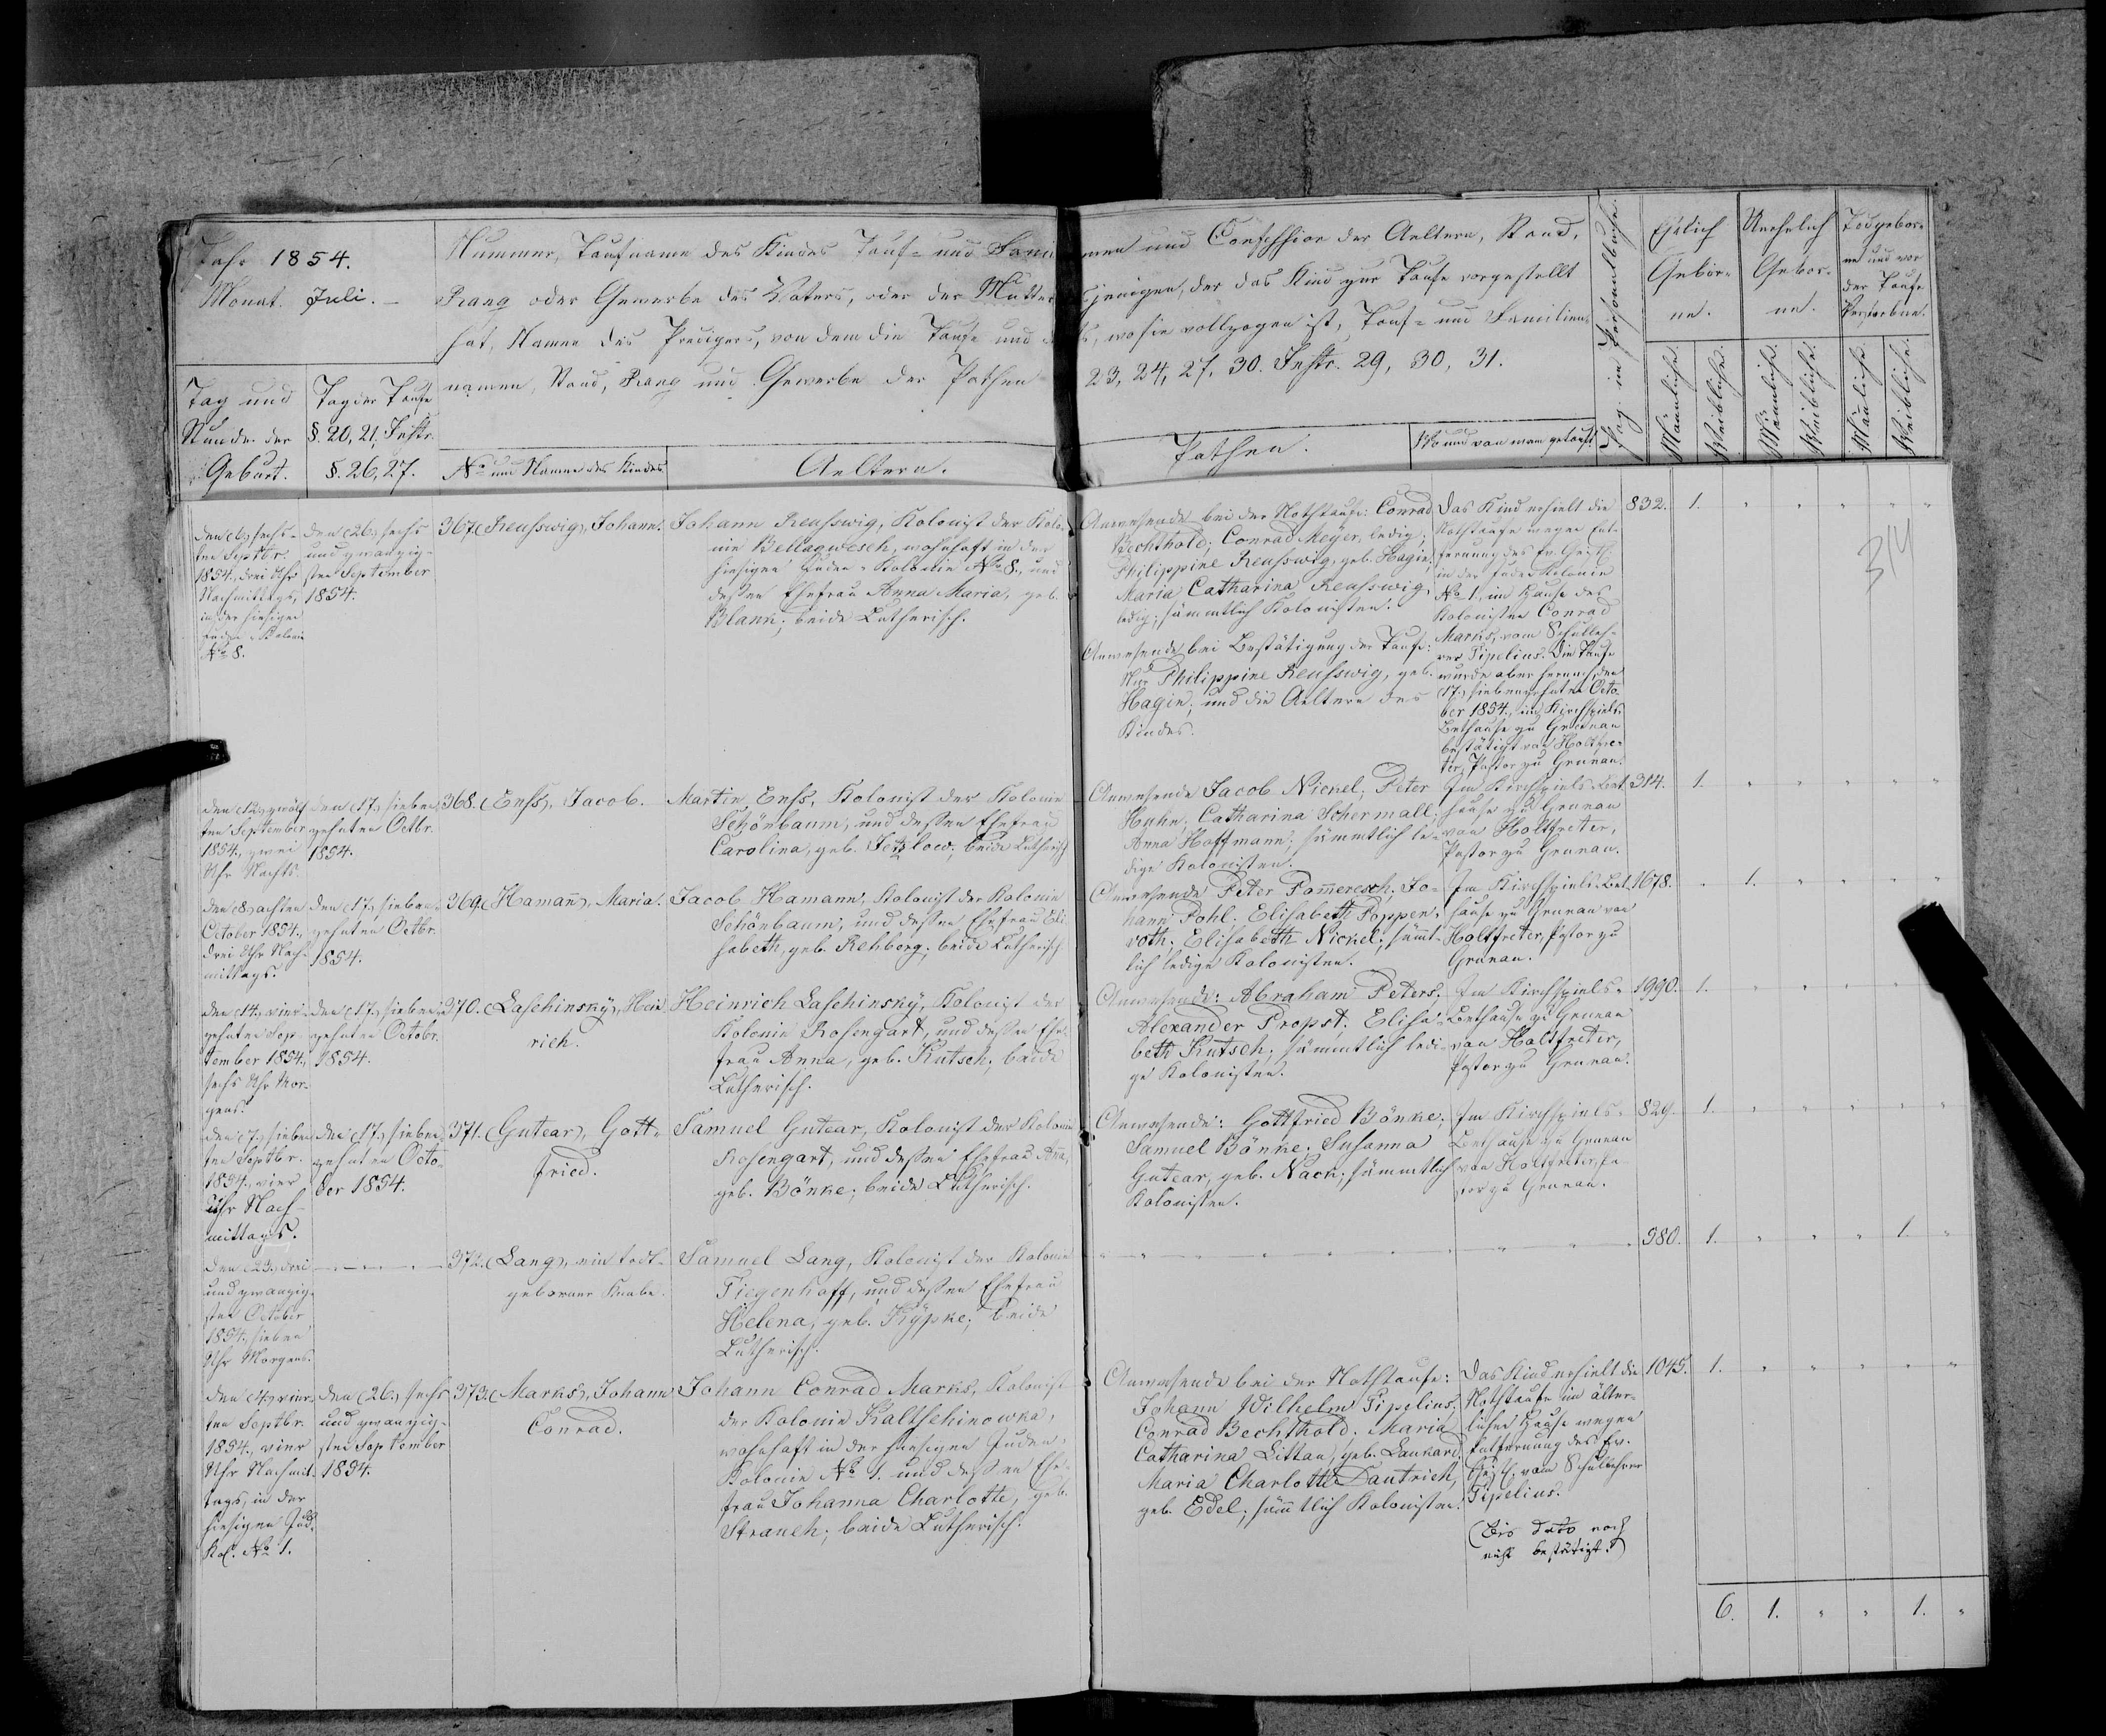 Jahr 1854.
Monat. Juli. –
Tag und
Stunde der
Geburt.
Tag der Taufe
§. 20, 21, Instr.
§. 26, 27.
Nummer, Taufname des Kindes Tauf- und Fami
Rang oder Gewerbe des Vaters, oder der Mutter
hat, Namen des Predigers, von dem die Taufe und
namen, Stand, Rang und Gewerbe der Pathen
No und Namen des Kindes
Aeltern.
men und Confession der Aeltern, Stand,
jenigen, der das Kind zur Taufe vorgestellt
wo sie vollzogen ist, Tauf- und Familien-
23, 24, 27, 30. Instr. 29, 30, 31.
Pathen.
Wo und von wem getauft.
Pag. im Personalbuche.
Ehelich
Gebor-
ne.
Unehelich
Gebor-
ne.
Todgebor-
ne und vor
der Taufe
Verstorbene.
Männliche.
Weibliche.
Männliche.
Weibliche.
Männliche.
Weibliche.
den (6) sechs-
ten Septbr.
1854., drei Uhr
Nachmittags,
in der hiesigen
Juden-Kolonie
No 8.
den (26) sechs
und zwanzig-
sten September
1854.
367. (Reusswig), Johann.
Johann Reusswig, Kolonist der Kolo-
nie Bellagwesch, wohnhaft in der
hiesigen Juden-Kolonie No 8., und
dessen Ehefrau Anna Maria, geb.
Blann; beide Lutherisch.
Anwesende bei der Nothtaufe: Conrad
Bechthold; Conrad Meyer, ledig;
Philippine Reusswig, geb. Hagin;
Maria Catharina Reusswig,
ledig; sämmtlich Kolonisten.
Anwesende bei Bestätigung der Taufe:
Philippine Reusswig, geb.
Hagin, und die Aeltern des
Kindes.
Das Kind erhielt die
Nothtaufe wegen Ent-
fernung des Ev. Geistl.
in der Juden-Kolonie
No 1., im Hause des
Kolonisten Conrad
Marks, vom Schulleh-
rer Pipelius. Die Taufe
wurde aber hernach, den
(17.) siebenzehnten Octo-
ber 1854., im Kirchspiels-
Bethause zu Grunau
bestätigt von Holtfre-
ter, Pastor zu Grunau.
832. 1.
314
den (12) zwölf
ten September
1854., zwei
Uhr Nachts.
den (17.) sieben-
zehnten Octbr.
1854.
368. (Enss), Jacob.
Martin Enss, Kolonist der Kolonie
Schönbaum, und dessen Ehefrau
Carolina, geb. Jetzlow; beide Lutherisch
Anwesende Jacob Nickel; Peter
Huhn; Catharina Schermall;
Anna Hoffmann; sämmtlich le-
dige Kolonisten.
Im Kirchspiels-Bet-
hause zu Grunau
von Holtfreter,
Pastor zu Grunau.
314. 1.
den (8) achten
October 1854.,
drei Uhr Nach-
mittags.
den (17.) sieben-
zehnten Octbr.
1854.
369. (Hamañ), Maria.
Jacob Hamann, Kolonist der Kolonie
Schönbaum, und dessen Ehefrau Eli-
sabeth, geb. Rehberg; beide Lutherisch
Anwesende Peter Pom̄eresch; Jo-
hann Pohl. Elisabeth Poppen-
roth; Elisabeth Nickel; sämt-
lich ledige Kolonisten.
Im Kirchspiels-Bet-
hause zu Grunau von
Holtfreter, Pastor zu
Grunau.
1678. 1.
den (14.) vier-
zehnten Sep-
tember 1854.,
sechs Uhr Mor-
gens.
den (17.) sieben-
zehnten Octobr.
1854.
370. (Laschinsky), Hein-
rich.
Heinrich Laschinsky, Kolonist der
Kolonie Rosengart, und dessen Ehe-
frau Anna, geb. Kutsch; beide
Lutherisch.
Anwesende: Abraham Peters;
Alexander Propst; Elisa-
beth Kutsch; sämmtlich ledi-
ge Kolonisten.
Im Kirchspiels-
Bethause zu Grunau
von Holtfreter,
Pastor zu Grunau.
1990. 1.
den (7.) sieben
ten Septbr.
1854., vier
Uhr Nach-
mittags.
den (17.) sieben-
zehnten Octo-
ber 1854.
371. (Gutear), Gott-
fried.
Samuel Gutear, Kolonist der Kolonie
Rosengart, und dessen Ehefrau Aña,
geb. Bönke; beide Lutherisch.
Anwesende: Gottfried Bönke;
Samuel Bönke; Susanna
Gutear, geb. Nack; sämmtlich
Kolonisten.
Im Kirchspiels-
Bethause zu Grunau
von Holtfreter, Pa-
stor zu Grunau.
829. 1.
den (23.) drei
und zwanzig-
sten October
1854., sieben
Uhr Morgens.
372. (Lang), ein todt-
geborner Knabe.
Samuel Lang, Kolonist der Kolonie
Tiegenhoff, und dessen Ehefrau
Helena, geb. Kypke; beide
Lutherisch.
980. 1. 1.
den (4.) vier-
ten Septbr.
1854., vier
Uhr Nachmit-
tags, in der
hiesigen Jud.
Kol. No 1.
den (26.) sechs
und zwanzig-
sten September
1854.
373. (Marks), Johann
Conrad.
Johann Conrad Marks, Kolonist
der Kolonie Kaltschinowka,
wohnhaft in der hiesigen Juden-
Kolonie No 1. und dessen Ehe-
frau Johanna Charlotte, geb.
Strauch; beide Lutherisch.
Anwesende bei der Nothtaufe:
Johann Wilhelm Pipelius;
Conrad Bechthold. Maria
Catharina Littau, geb. Lankard;
Maria Charlotte Dautrich,
geb. Edel; säm̄tlich Kolonisten.
Das Kind erhielt die
Nothtaufe im älter-
lichen Hause wegen
Entfernung des Ev.
Geistl. vom Schullehrer
Pipelius.
(Bis dato noch
nicht bestätigt.)
1045. 1.
6. 1. 1.